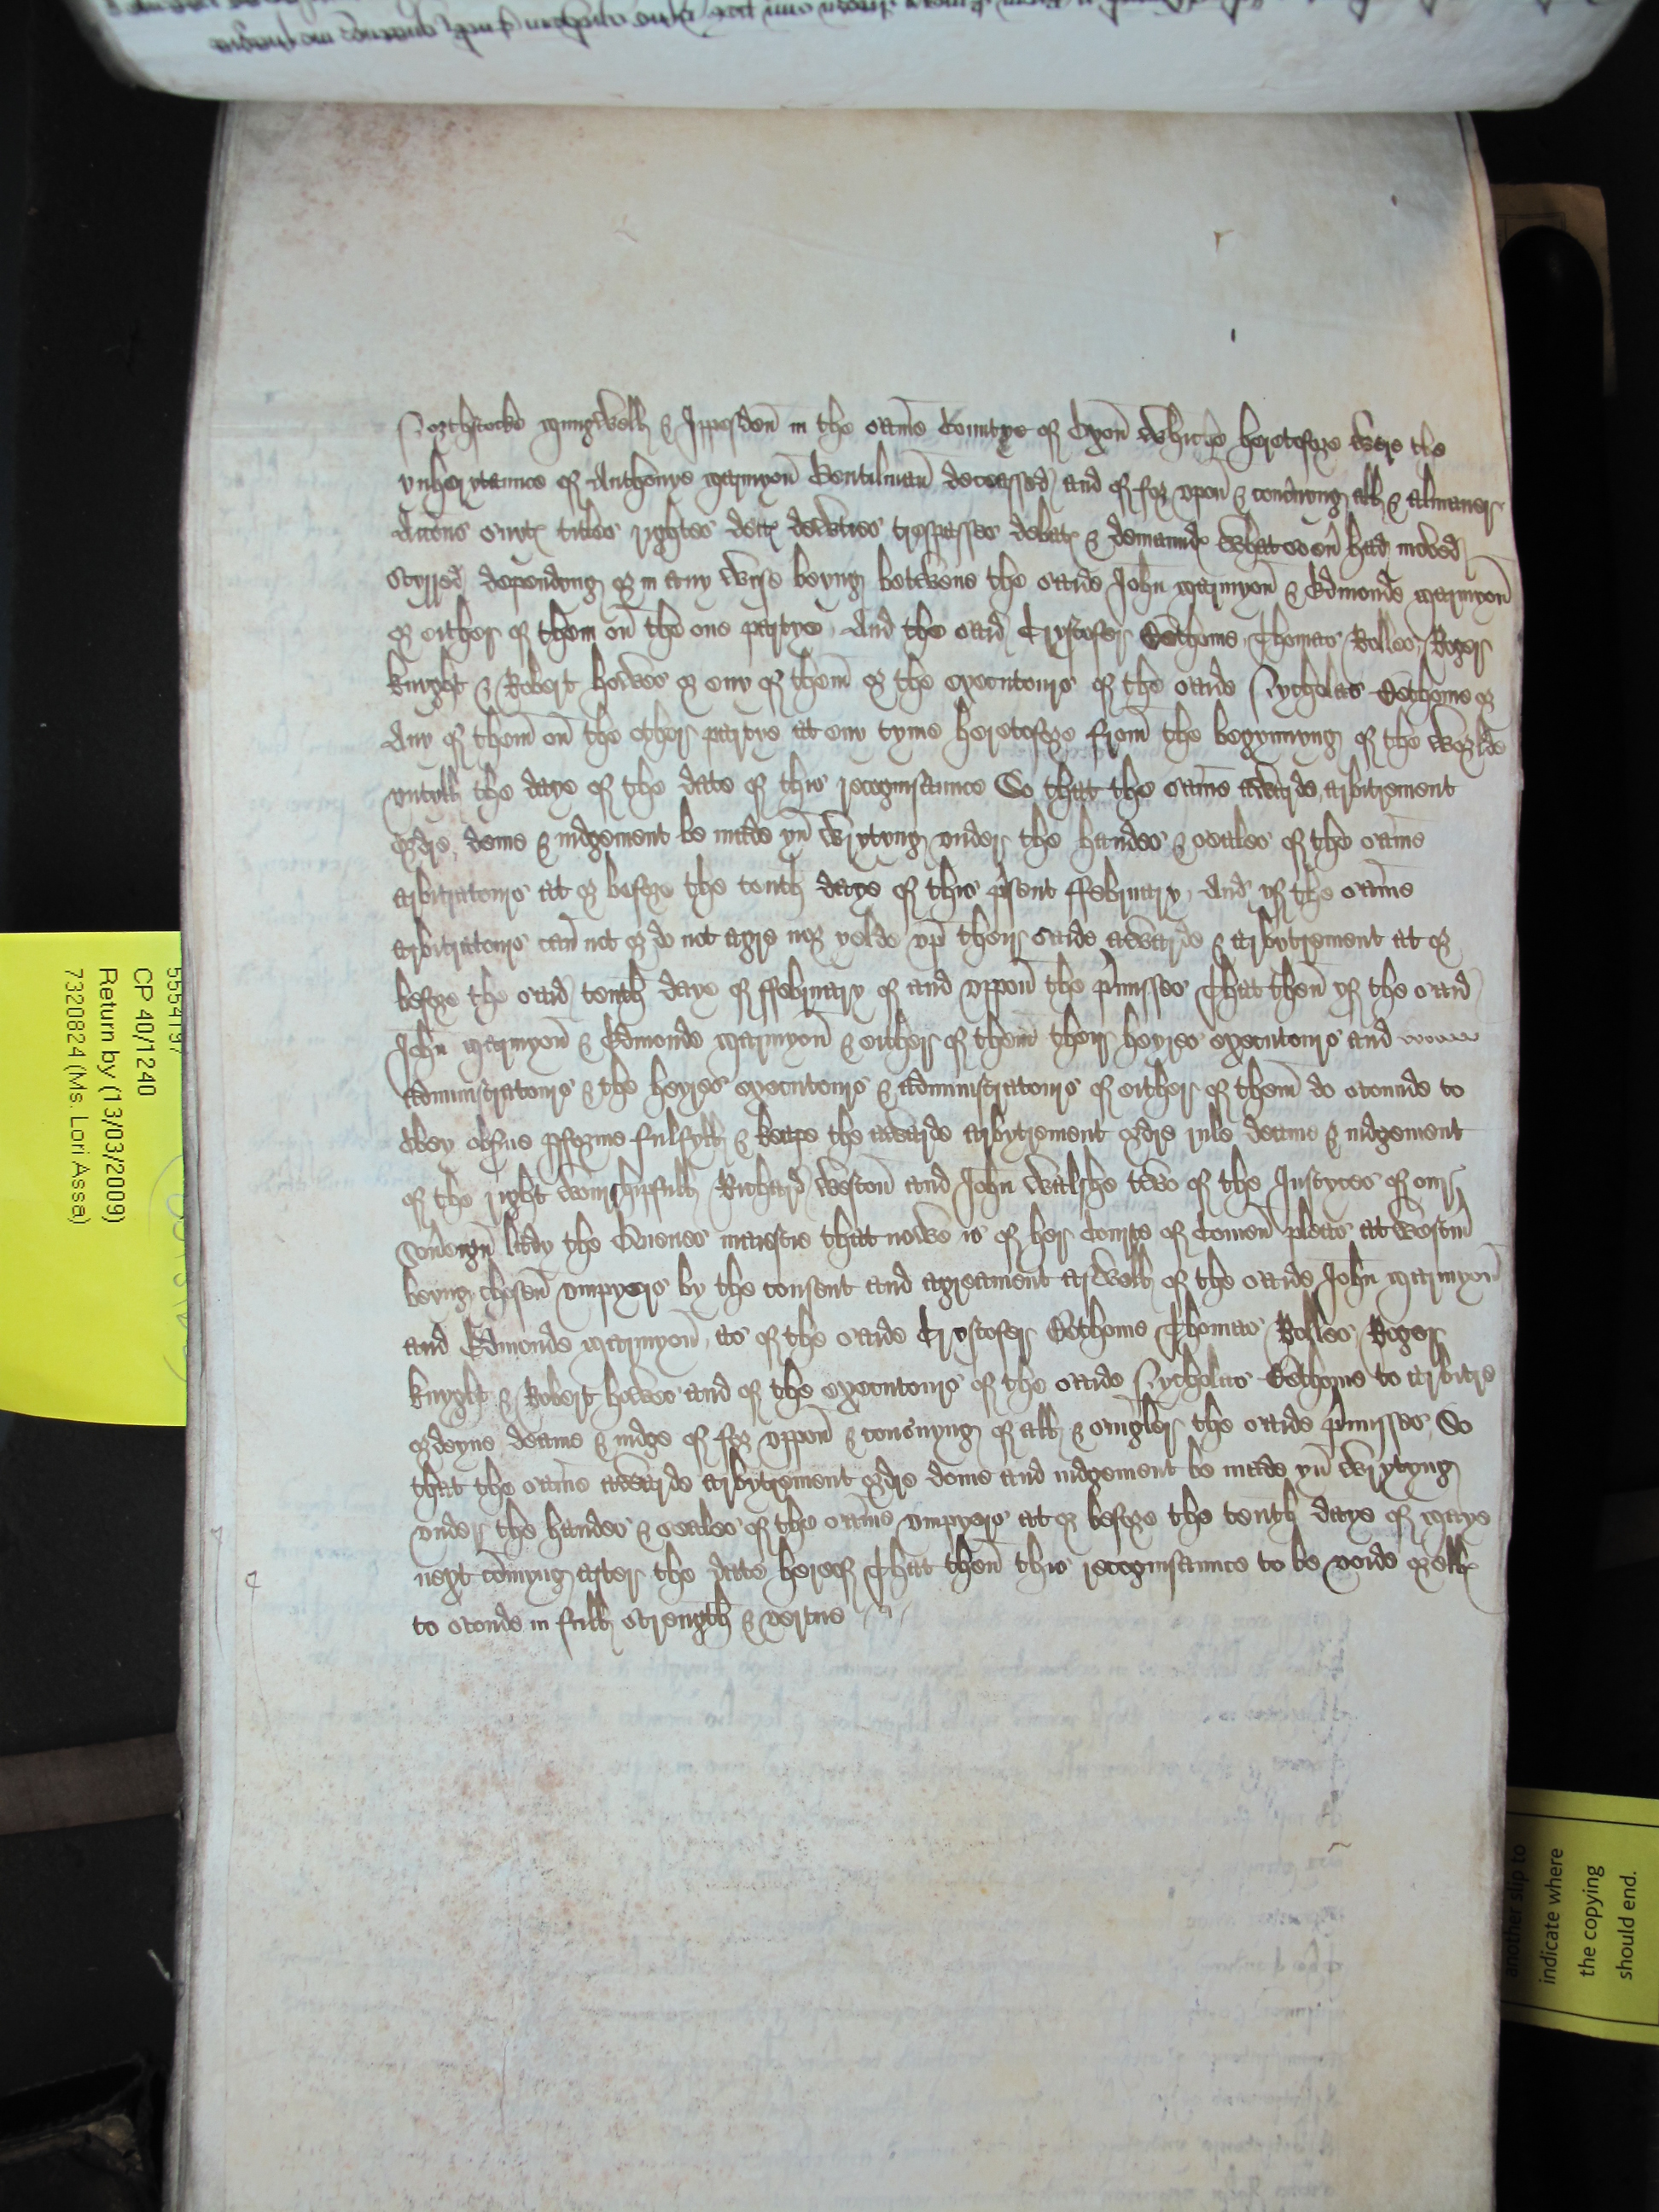 Northstocke Mungwell & Ippesden in the same Countye of Oxon whiche heretofore were the
ynherytaunce of Anthonye Marmyon Gentilman deceassed and of for vpon & conc'nyng all & almaner
Accons sut' titles rightes dett' dewties trespasses debat' & demaund' whatsoeu' had moved
Styrred dependyng or in any wise beyng betwene the saide John Marmyon & Edmonde Marmyon
or either of them on the one partye And the said Crystofer Thomas Bolles Roger
Knyght & Robert Howes or eny of them or the executours of the saide Nycholas or
Any of them on the other partye at eny tyme heretofore from the begynnyng of the worlde
vntyll the daye of the date of this recognisaunce So that the same awarde arbitrement
ordre, dome & iudgement be made yn wrytyng vnder the handes & seales of the same
arbitratours at or before the tenth daye of this p'sent ffebruary, And yf the same
arbitratours can not or do not agre nor yelde vp their saide awarde & arbytrement at or
before the said tenth daye of ffebruary of and vppon the p'misses That then yf the said
John Marmyon & Edmonde Marmyon & either of them their heyres executours and
Administratours & the heyres executours & administratours of either of them do stonde to
obey obs'ue p'forme fulfyll & keape the awarde arbytrement ordre rule deame & iudgement
of the right worshipfull Richard Weston and John Walshe two of the Justyces of our
Sou'eign lady the Quenes maiestie that nowe is of her Courte of Comen pleas at Westm'
beyng chosen vmpyers by the consent and agreament aswell of the saide John Marmyon
and Edmonde Marmyon, as of the saide Crystofer Thomas Bolles Roger
Knyght & Robert Howes and of the executours of the saide Nycholas to arbitre
ordeyne deame & iudge of for vppon & conc'nyng of all & sing'ler the saide p'misses, So
that the same awarde arbytrement ordre dome and iudgement be made yn wrytyng
vnder the handes & seales of the same vmpyers at or before the tenth daye of Maye
next comyng after the date hereof That then this recognisaunce to be voide orell'
to stonde in full strength & vertue
5554197
CP 40/1240
Return by (13/03/2009)
7320824 (Ms. Lori Assa)
another slip to
indicate where
the copying
should end.